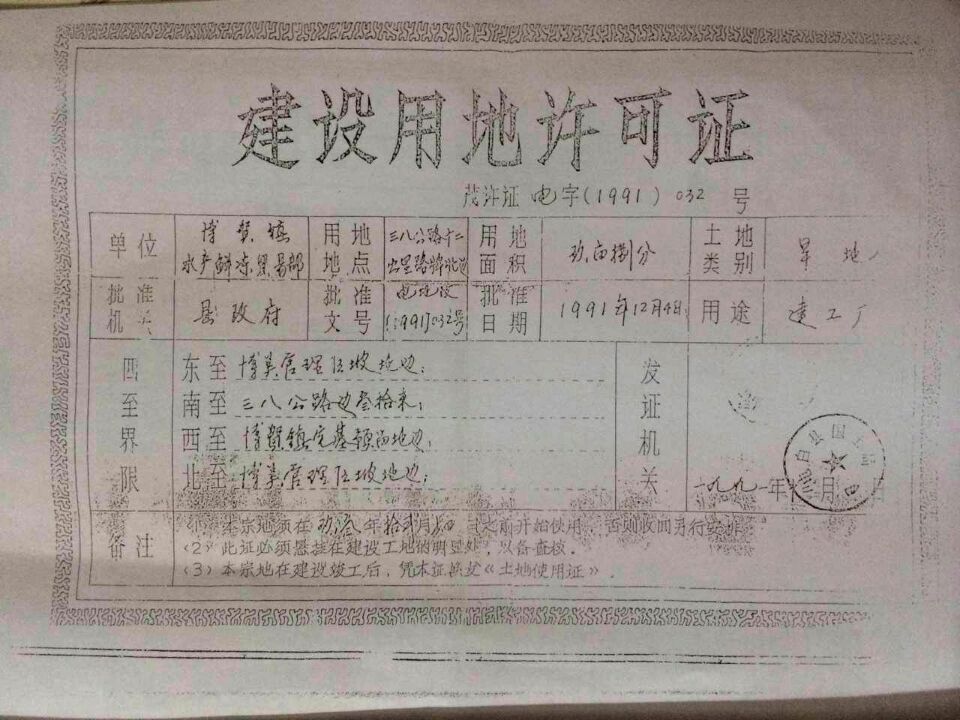 建设用地许可证
茂许证 电字(1991)032 号
单位 博贺镇水产鲜冻贸易部 用地地点 三八公路十二公里路碑北边 用地面积 玖亩捌分 土地类别 旱地
批准机关 县政府 批准文号 (1991)032号 批准日期 1991年12月4日 用途 建工厂
四至界限 发证机关
东至 博美管理区坡地边;
南至 三八公路边叁拾米;
西至 博贺镇 地边;
北至 博美管理区坡地边;
一九九一年十二月四日
备注
(1) 本宗地须在 年拾 月 日之前开始使用,否则收回另行安排
(2) 此证必须悬挂在建设工地的明显处,以备查核。
(3) 本宗地在建设竣工后,凭本证换发《土地使用证》。